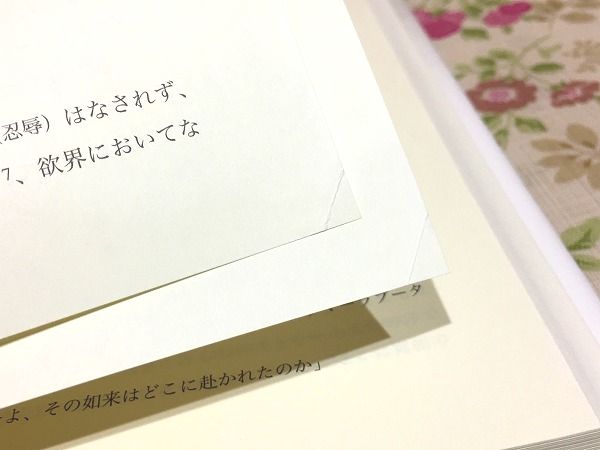 （忍辱）はなされず、
7、欲界においてな
ブータ
よ、その如来はどこに赴かれたのか」